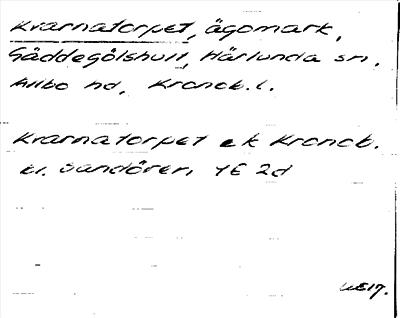 Kvarnatorpet, ägomark,
Gäddegölshult, Härlunda sn,
Allbo hd, Kronob. l.
Kvarnatorpet ek Kronob.
bl. Sandören 4E 2d